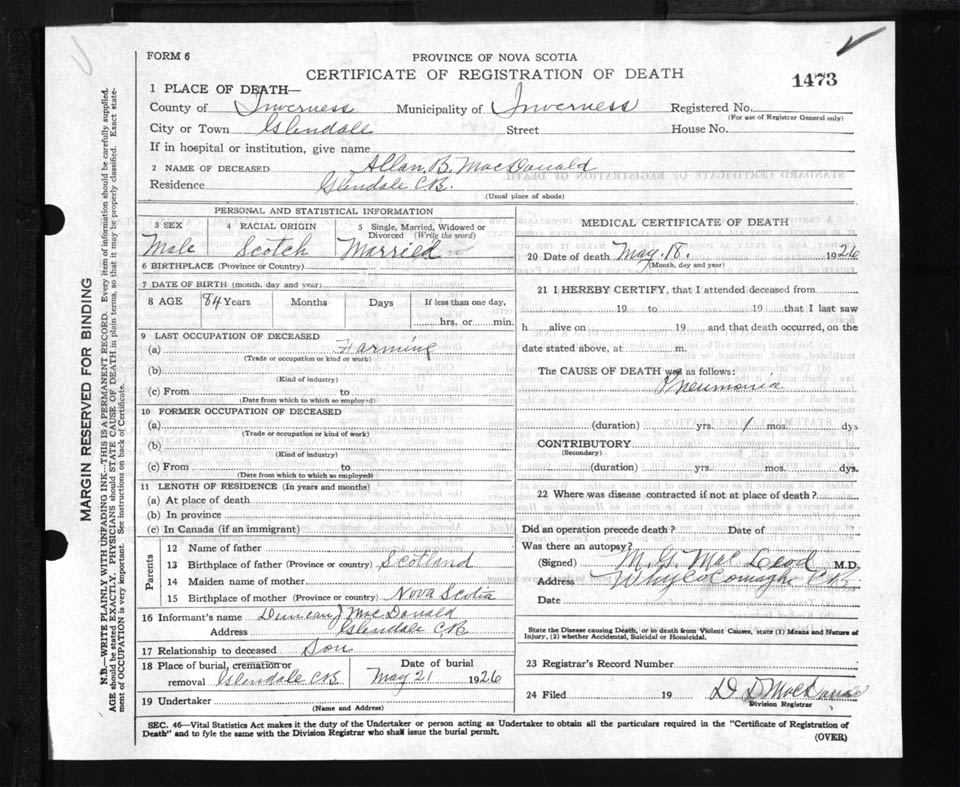 FORM 6
PROVINCE OF NOVA SCOTIA
CERTIFICATE OF REGISTRATION OF DEATH
1473
1 PLACE OF DEATH—
County of Inverness Municipality of Inverness Registered No.
(For use of Registrar General only)
City or Town Glendale Street House No.
If in hospital or institution, give name
2 NAME OF DECEASED Allan B. MacDonald
Residence Glendale C.B.
(Usual place of abode)
PERSONAL AND STATISTICAL INFORMATION
3 SEX 4 RACIAL ORIGIN 5 Single, Married, Widowed or Divorced (Write the word)
Male Scotch Married
6 BIRTHPLACE (Province or Country)
7 DATE OF BIRTH (month, day and year)
8 AGE 84 Years Months Days If less than one day,
hrs. or min.
9 LAST OCCUPATION OF DECEASED
(a) Farming
(Trade or occupation or kind of work)
(b)
(Kind of industry)
(c) From to
(Date from which to which so employed)
10 FORMER OCCUPATION OF DECEASED
(a)
(Trade or occupation or kind of work)
(b)
(Kind of industry)
(c) From to
(Date from which to which so employed)
11 LENGTH OF RESIDENCE (In years and months)
(a) At place of death
(b) In province
(c) In Canada (if an immigrant)
Parents
12 Name of father
13 Birthplace of father (Province or country) Scotland
14 Maiden name of mother
15 Birthplace of mother (Province or country) Nova Scotia
16 Informant's name Duncan J MacDonald
Address Glendale C.B.
17 Relationship to deceased Son
18 Place of burial, cremation or removal Glendale C.B. Date of burial May 21 1926
19 Undertaker
(Name and Address)
MEDICAL CERTIFICATE OF DEATH
20 Date of death May. 18. 1926
(Month, day and year)
21 I HEREBY CERTIFY, that I attended deceased from
19 to 19 that I last saw
h alive on 19 and that death occurred, on the
date stated above, at m.
The CAUSE OF DEATH was as follows:
Pneumonia
(duration) yrs. 1 mos. dys
CONTRIBUTORY
(Secondary)
(duration) yrs. mos. dys.
22 Where was disease contracted if not at place of death?
Did an operation precede death? Date of
Was there an autopsy?
(Signed) M. G. MacLeod M.D.
Address Whycocomagh C.B.
Date
State the Disease causing Death, or in death from Violent Causes, state (1) Means and Nature of
Injury, (2) whether Accidental, Suicidal or Homicidal.
23 Registrar's Record Number
24 Filed 19 D. D. MacDonald
Division Registrar
SEC. 46—Vital Statistics Act makes it the duty of the Undertaker or person acting as Undertaker to obtain all the particulars required in the "Certificate of Registration of
Death" and to fyle the same with the Division Registrar who shall issue the burial permit.
(OVER)
MARGIN RESERVED FOR BINDING
N.B.—WRITE PLAINLY, WITH UNFADING INK—THIS IS A PERMANENT RECORD. Every item of information should be carefully supplied.
AGE should be stated EXACTLY. PHYSICIANS should STATE CAUSE OF DEATH in plain terms, so that it may be properly classified. Exact state-
ment of OCCUPATION is very important. See instructions on back of Certificate.